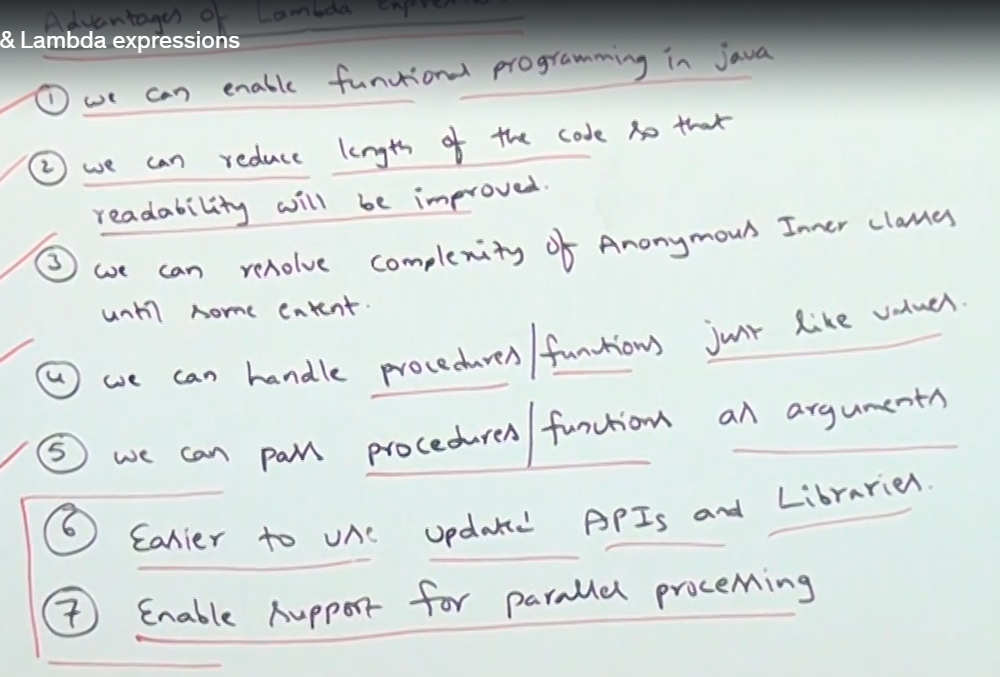 Advantages of Lambda Expre
& Lambda expressions
① we can enable functional programming in java
② we can reduce length of the code so that
readability will be improved.
③ we can resolve complexity of Anonymous Inner classes
until some extent.
④ we can handle procedures/functions just like values.
⑤ we can pass procedures/functions as arguments
⑥ Easier to use updated APIs and Libraries.
⑦ Enable support for parallel processing